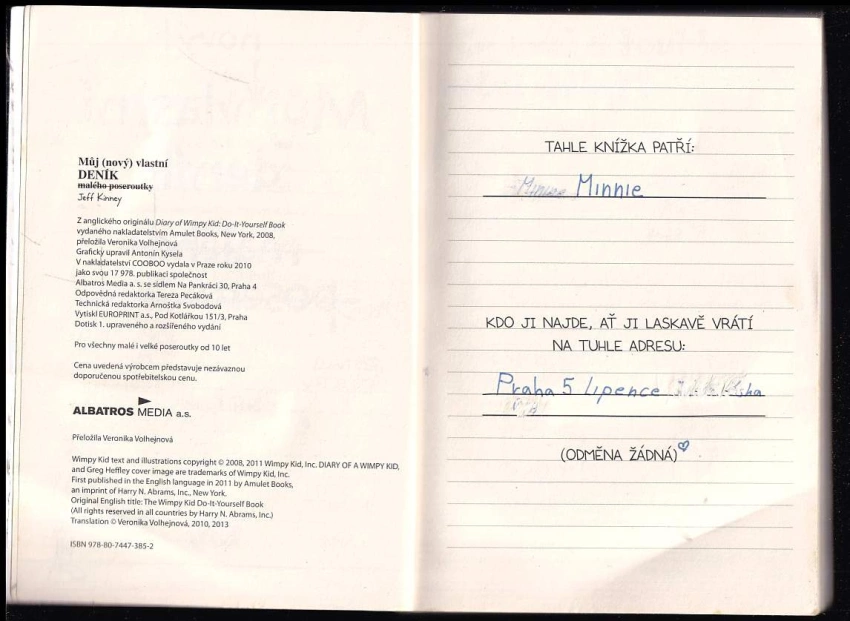 Můj (nový) vlastní
DENÍK
malého poseroutky
Jeff Kinney
Z anglického originálu Diary of Wimpy Kid: Do-It-Yourself Book
vydaného nakladatelstvím Amulet Books, New York, 2008,
přeložila Veronika Volhejnová
Graficky upravil Antonín Kysela
V nakladatelství COOBOO vydala v Praze roku 2010
jako svou 17 978. publikaci společnost
Albatros Media a. s. se sídlem Na Pankráci 30, Praha 4
Odpovědná redaktorka Tereza Pecáková
Technická redaktorka Arnoštka Svobodová
Vytiskl EUROPRINT a.s., Pod Kotlářkou 151/3, Praha
Dotisk 1. upraveného a rozšířeného vydání
Pro všechny malé i velké poseroutky od 10 let
Cena uvedená výrobcem představuje nezávaznou
doporučenou spotřebitelskou cenu.
ALBATROS MEDIA a.s.
Přeložila Veronika Volhejnová
Wimpy Kid text and illustrations copyright © 2008, 2011 Wimpy Kid, Inc. DIARY OF A WIMPY KID,
and Greg Heffley cover image are trademarks of Wimpy Kid, Inc.
First published in the English language in 2011 by Amulet Books,
an imprint of Harry N. Abrams, Inc., New York.
Original English title: The Wimpy Kid Do-It-Yourself Book
(All rights reserved in all countries by Harry N. Abrams, Inc.)
Translation © Veronika Volhejnová, 2010, 2013
ISBN 978-80-7447-385-2
TAHLE KNÍŽKA PATŘÍ:
Minnie
KDO JI NAJDE, AŤ JI LASKAVĚ VRÁTÍ
NA TUHLE ADRESU:
Praha 5 lipence
(ODMĚNA ŽÁDNÁ)